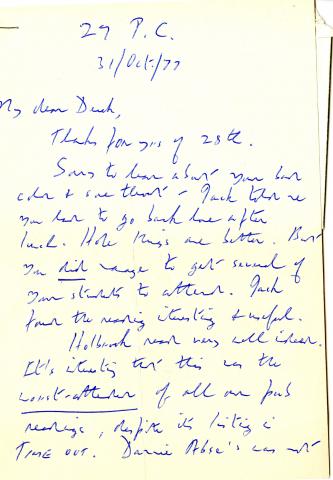 29 P.C.
31/Oct/77
My dear Derek,
Thanks for yrs of 28th.
Sorry to hear about your bad
cold & sore throat - Jack told me
you had to go back home after
lunch. Hope things are better. But
you did manage to get several of
your students to attend. Jack
found the reading interesting & useful.
Holbrook read very well indeed.
It's interesting that this was the
worst-attended of all our pub
readings, despite its listing in
TIME OUT. Dannie Abse's was not